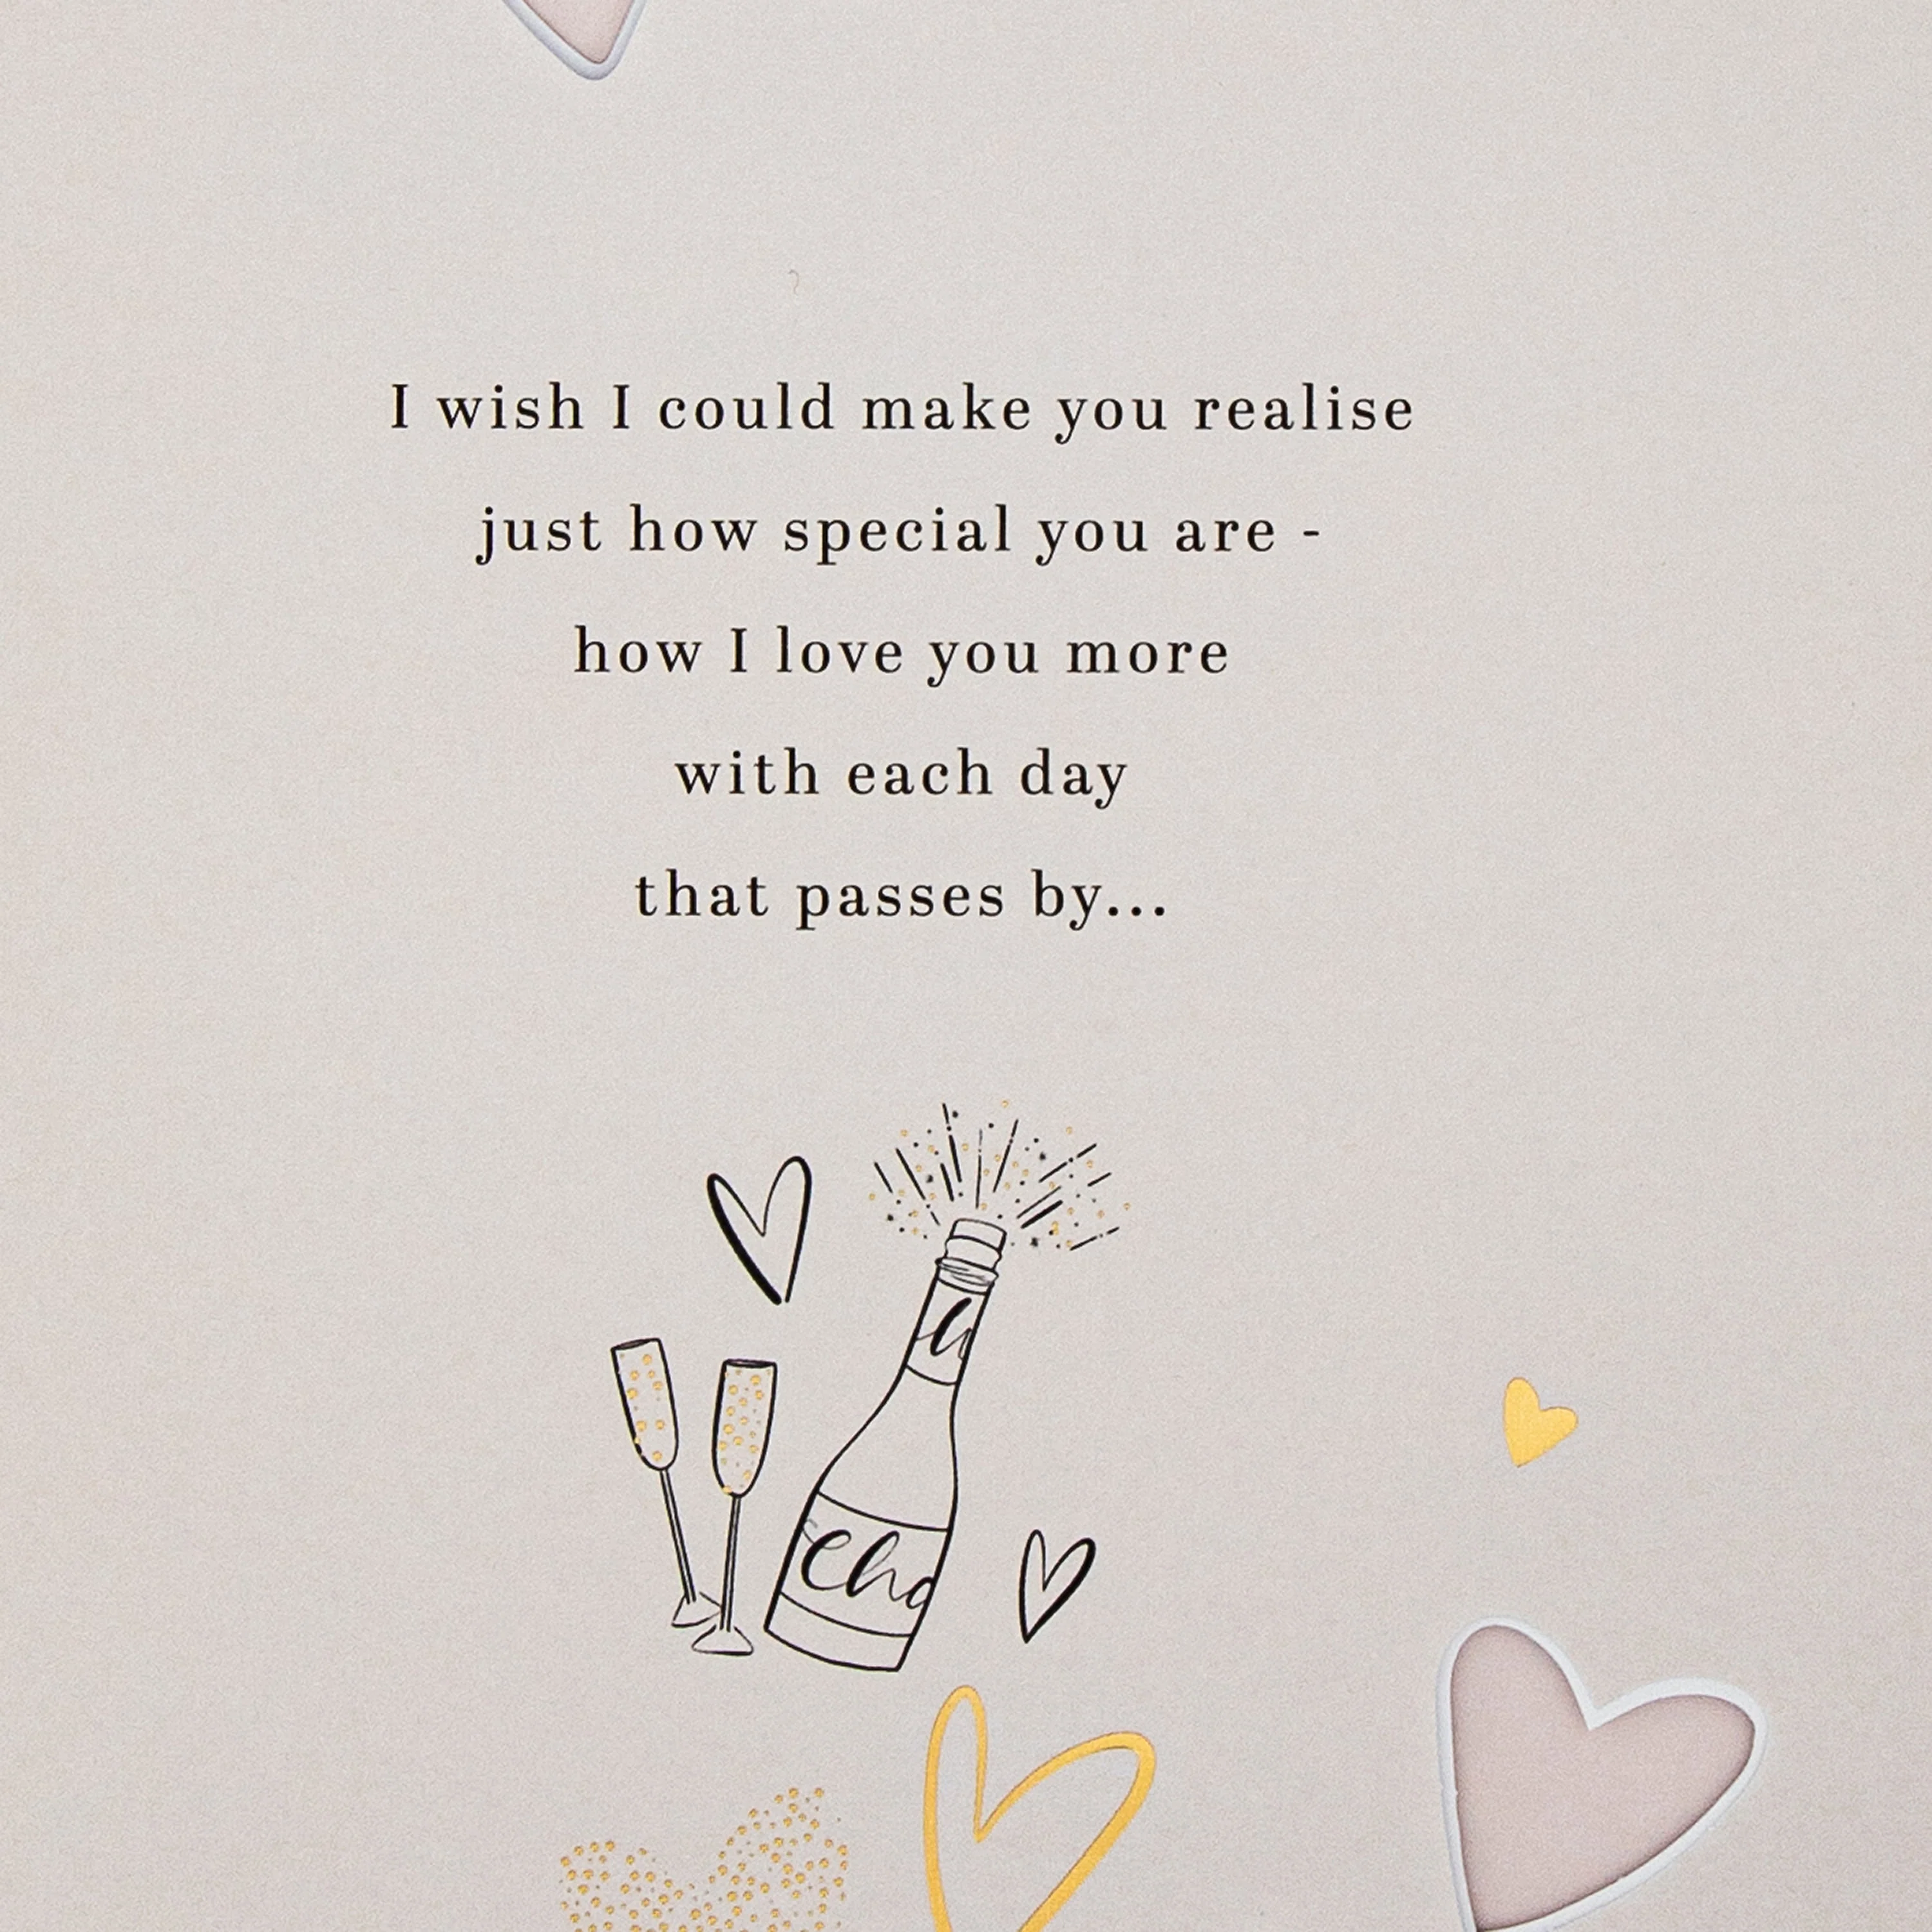 I wish I could make you realise
just how special you are -
how I love you more
with each day
that passes by...
Cha